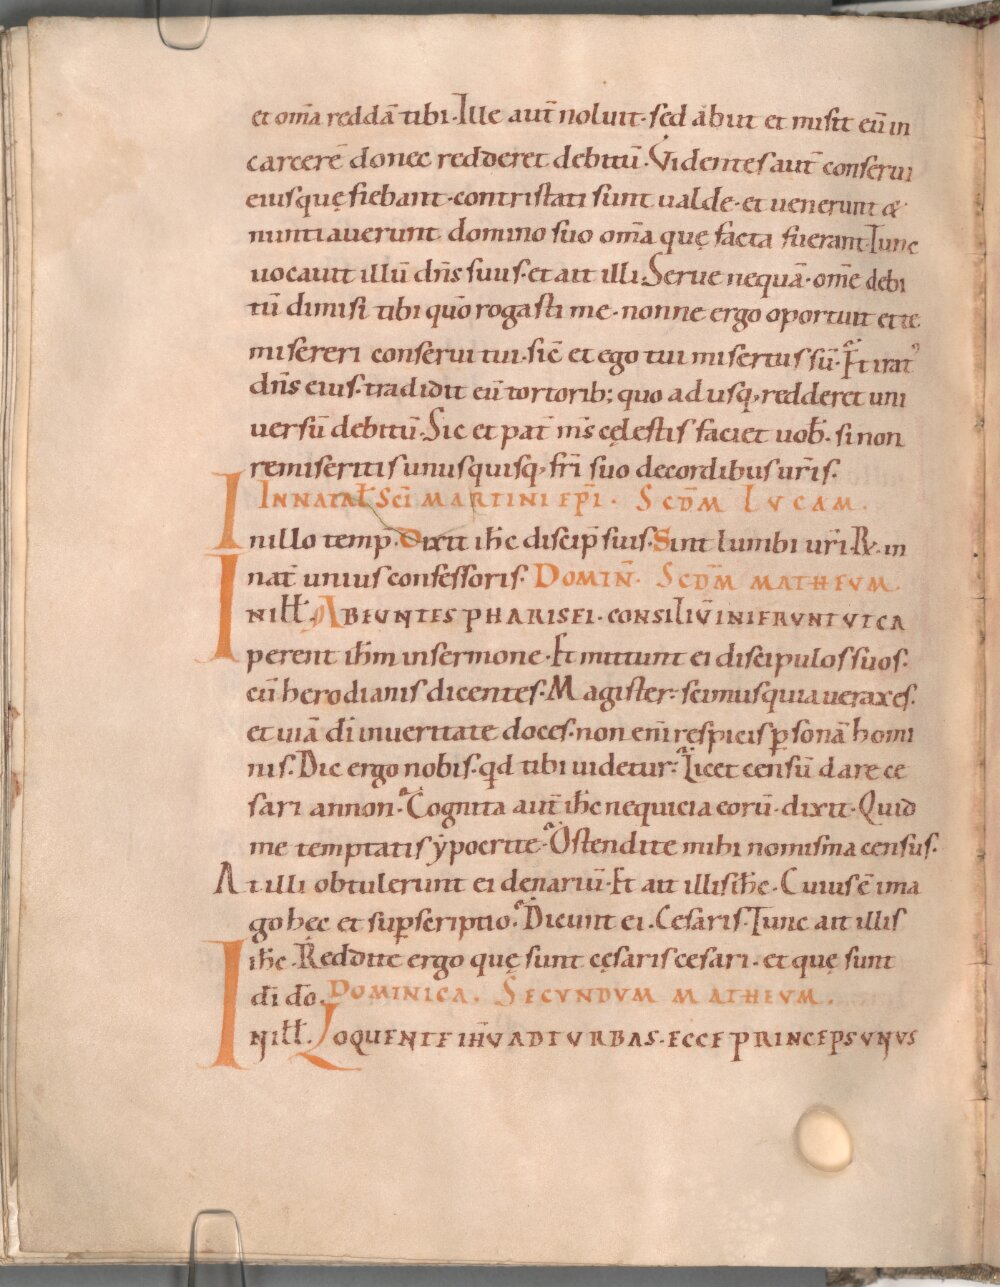 et om̄a reddā tibi. Ille aut̄ noluit. sed abiit et misit eū in
carcerē donec redderet debitū. Videntes aut̄ conserui
eius quę fiebant. contristati sunt ualde. et uenerunt &
nuntiauerunt domino suo om̄a quę facta fuerant. Tunc
uocauit illū dn̄s suus. et ait illi. Serue nequā. om̄e debi
tū dimisi tibi quō rogasti me. nonne ergo oportuit et te
misereri conserui tui. sic̄ et ego tui misertus sū. Et irat᾿
dn̄s eius. tradidit eū tortorib; quo ad usq, redderet uni
uersū debitū. Sic et pat̄ m̄s cęlestis faciet uob̄. si non
remiseritis unusquisq, fr̄i suo de cordibus ur̄is.
IN NATAŁ SC̄I MARTINI EP̄I. SCD̄M LVCAM.
In illo temp. Dixit ih̄c discip̄ suis. Sint lumbi ur̄i. R̸. in
nat̄ unius confessoris. DOMIN̄. SCD̄M MATHEVM.
IN iłł. ABEUNTES PHARISEI. CONSILIV̄ INIERVNT VT CA
perent ih̄m in sermone. Et mittunt ei discipulos suos.
cū herodianis dicentes. Magister. scimus quia uerax es.
et uiā dī in ueritate doces. non enī respicis p̱sonā homi
nis. Dic ergo nobis. qd̄ tibi uidetur. Licet censū dare ce
sari annon. Cognita aut̄ ih̄c nequicia eorū. dixit. Quid
me temptatis ẏpocrite. Ostendite mihi nomisma census.
At illi obtulerunt ei denariū. Et ait illis ih̄c. Cuius ē ima
go hęc et sup̱scriptio. Dicunt ei. Cesaris. Tunc ait illis
ih̄c. Reddite ergo quę sunt cęsaris cesari. et quę sunt
dī dō. DOMINICA. SECVNDVM MATHEVM.
IN iłł. LOQUENTE IH̄V AD TVRBAS. ECCE PRINCEPS VNUS